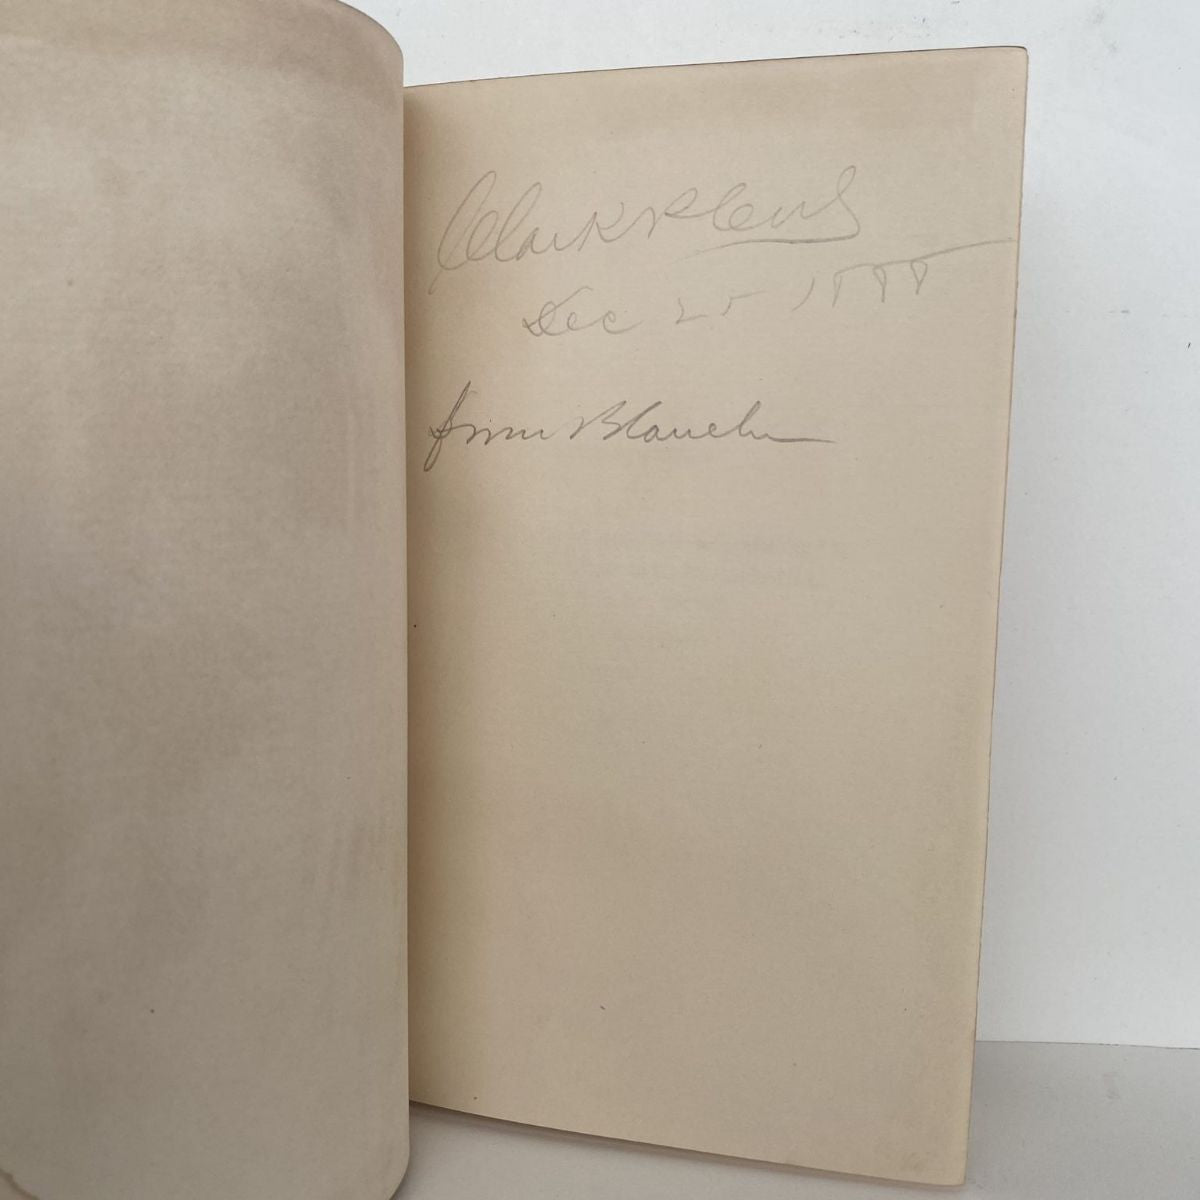 Clark
Dec 25 1888
from Blanche